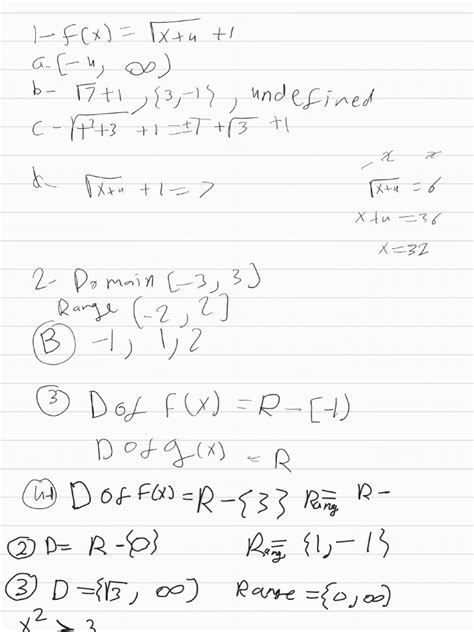 1- f(x) = √x+4 +1
a- [-4, ∞)
b- √7+1, {3,-1}, undefined
c- √t²+3 +1 = ±T+√3 +1
d- √x+4 +1 = 7
√x+4 = 6
x+4 = 36
x = 32
2- Domain [-3, 3)
Range (-2, 2]
B -1, 1, 2
3 D of f(x) = R-[-1)
D of g(x) = R
D of F(x) = R-{3} Rang = R-
2 D = R-{0} Rang = {1, -1}
3 D = {√3, ∞) Range = {0, ∞)
x² > 3